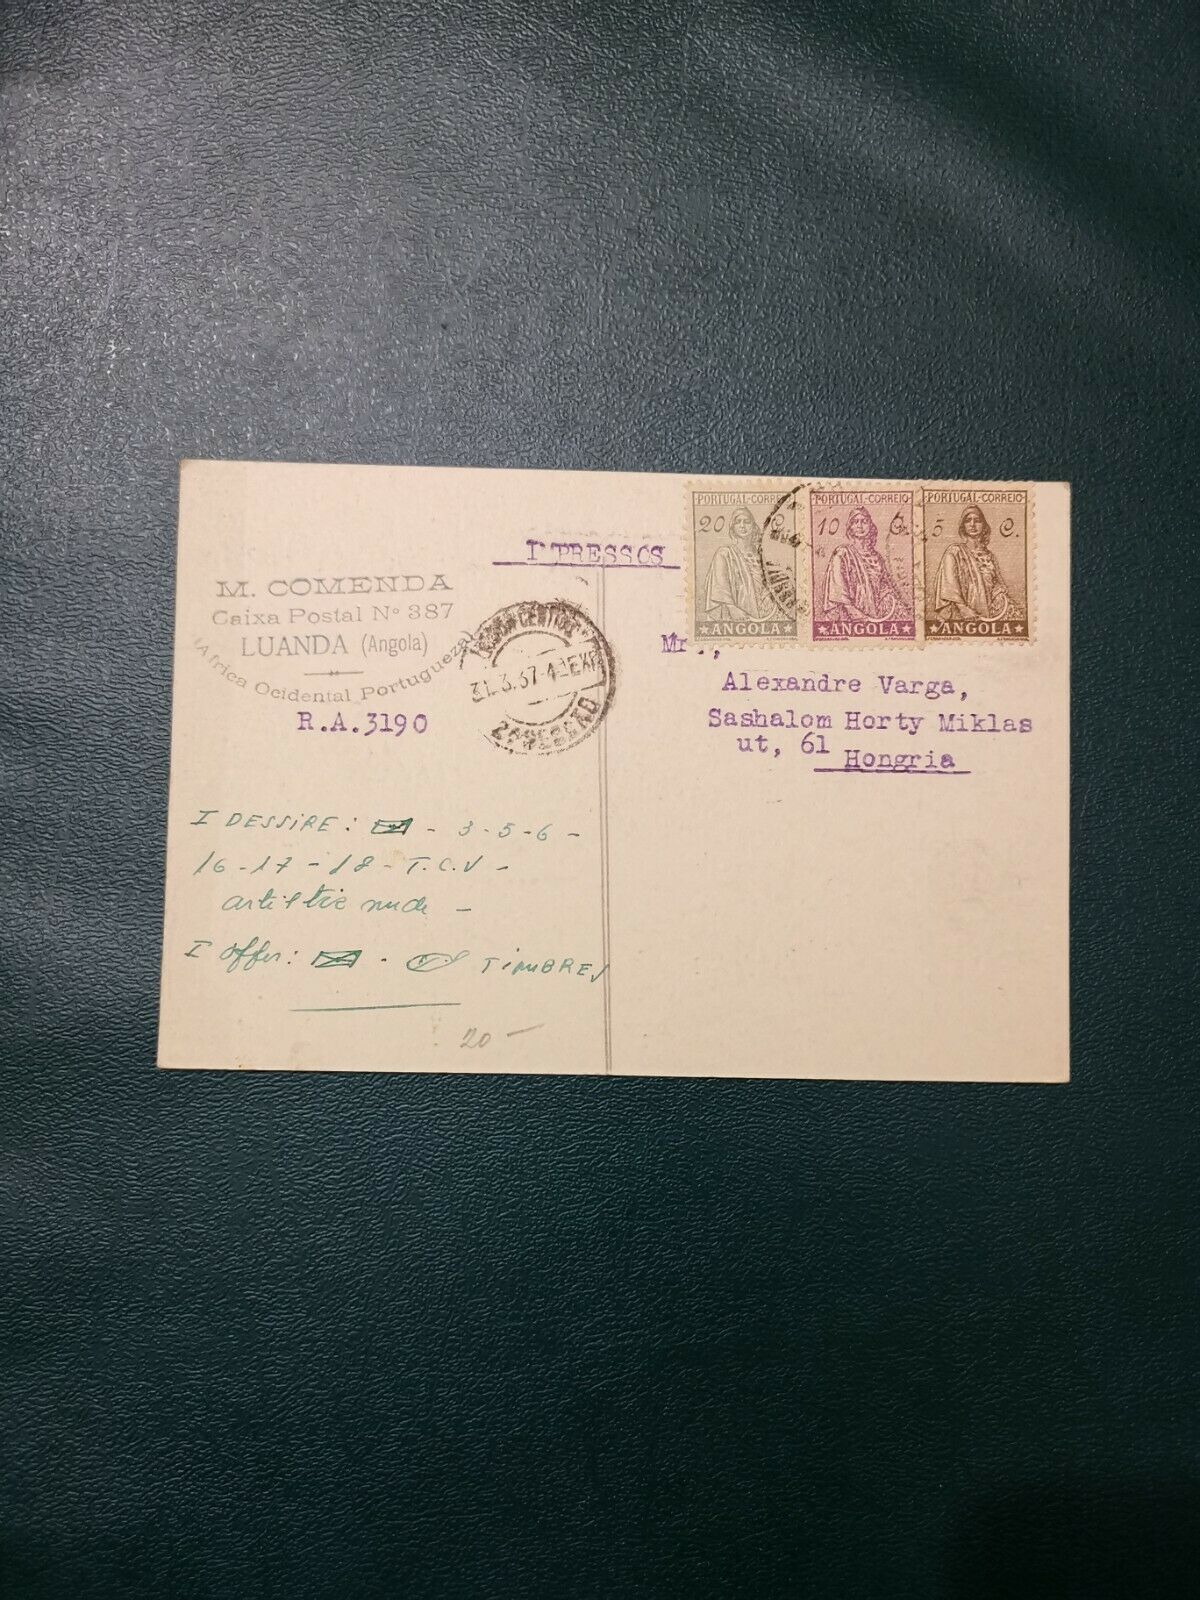 M. COMENDA
Caixa Postal Nº 387
LUANDA (Angola)
(Africa Ocidental Portugueza)
R.A.3190
I DESSIRE: - 3-5-6-
16-17-18-T.C.V-
nude -
I offer: - TIMBRES
20 -
31.3.37-4
PORTUGAL-CORREIO
20 C.
ANGOLA
PORTUGAL-CORREIO
10 C.
ANGOLA
PORTUGAL-CORREIO
5 C.
ANGOLA
Mr.,
Alexandre Varga,
Sashalom Horty Miklas
ut, 61
Hongria